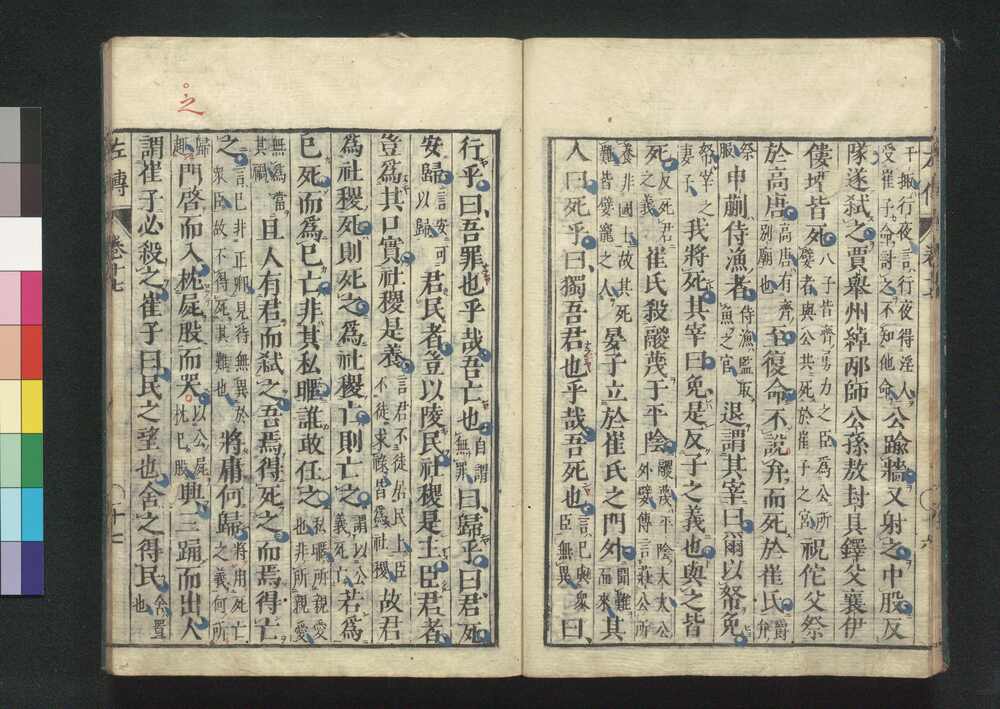 干掫行夜言行夜得淫人受崔子命討之不知他命公踰牆又射之中股反
隊遂弒之賈舉州綽邴師公孫敖封具鐸父襄伊
僂堙皆死八子皆齊勇力之臣為公所嬖者與公共死於崔子之宮祝佗父祭
於高唐高唐有齊別廟也至復命不說弁而死於崔氏爵弁
祭服申蒯侍漁者侍漁監取魚之官退謂其宰曰爾以帑免
帑宰之妻子我將死其宰曰免是反子之義也與之皆
死反死君之義崔氏殺鬷蔑于平陰鬷蔑平陰大夫公外嬖傳言莊公所
養非國士故其死難皆嬖寵之人晏子立於崔氏之門外聞難而來其
人曰死乎曰獨吾君也乎哉吾死也言己與衆臣無異曰
行乎曰吾罪也乎哉吾亡也自謂無罪曰歸乎曰君死
安歸言安可以歸君民者豈以陵民社稷是主臣君者
豈爲其口實社稷是養言君不徒居民上臣不徒求祿皆爲社稷故君
爲社稷死則死之爲社稷亡則亡之謂以公義死亡若爲
己死而爲己亡非其私暱誰敢任之私暱所親愛也非所親愛
無爲當其禍且人有君而弒之吾焉得死之而焉得亡
之言己非正卿見待無異於衆臣故不得死其難也將庸何歸將用死亡之義何所
歸趣門啓而入枕屍股而哭以公屍枕己股興三踊而出人
謂崔子必殺之崔子曰民之望也舍之得民舍置也
左傳 卷十七
之